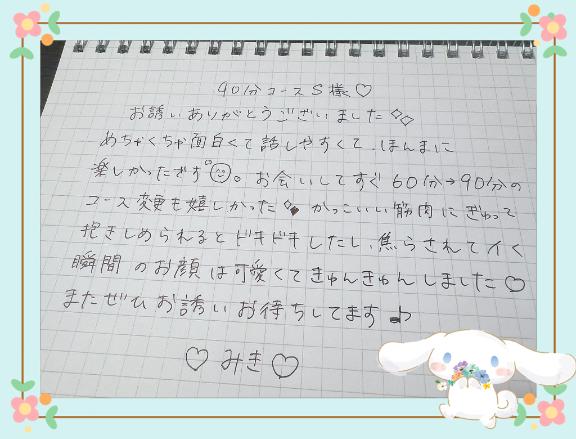 90分コースS様♡
お誘いありがとうございました
めちゃくちゃ面白くて話しやすくて、ほんまに
楽しかったです。お会いしてすぐ60分→90分の
コース変更も嬉しかった かっこいい筋肉にぎゅって
抱きしめられるとドキドキしたし、焦らされてイく
瞬間のお顔は可愛くてきゅんきゅんしました♡
またぜひお誘いお待ちしてます♪
♡みき♡